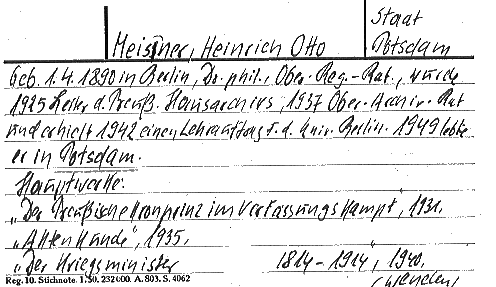 Staat
Meisner, Heinrich Otto Potsdam
Geb. 1.4.1890 in Berlin, Dr. phil., Ober-Reg.-Rat, wurde
1925 Leiter d. Preuß. Hausarchivs, 1937 Ober-Archiv-Rat
und erhielt 1942 einen Lehrauftrag f. d. Univ. Berlin. 1949 lebte
er in Potsdam.
Hauptwerke:
„Der Preußische Kronprinz im Verfassungskampf, 1931.
„Aktenkunde", 1935.
„Der Kriegsminister 1814-1914, 1940.
Reg. 10. Stichnote. 1. 50. 232000. A. 803. S. 4062
(wenden)